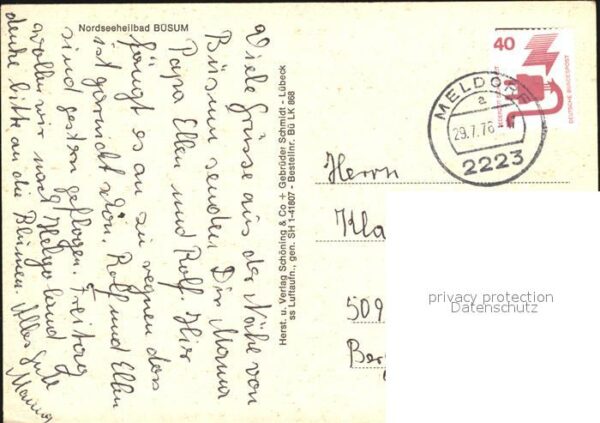 Nordseeheilbad BÜSUM
Viele Grüsse aus der Nähe von
Büsum senden Dir Mama
Papa Ellen und Rolf. Hier
fängt es an zu regnen das
ist garnicht schön. Rolf und Ellen
sind gestern geflogen. Freitag
wollen wir nach Helgoland
denke bitte an die Blumen. Alles Gute
Mama
Herst. u. Verlag Schöning & Co + Gebrüder Schmidt - Lübeck
ss Luftaufn., gen. SH 1-41807 - Bestellnr. Bü LK 868
40
DEUTSCHE BUNDESPOST
MELDORF
a
29.7.76
2223
Herrn
Kla
509
Ber
privacy protection
Datenschutz